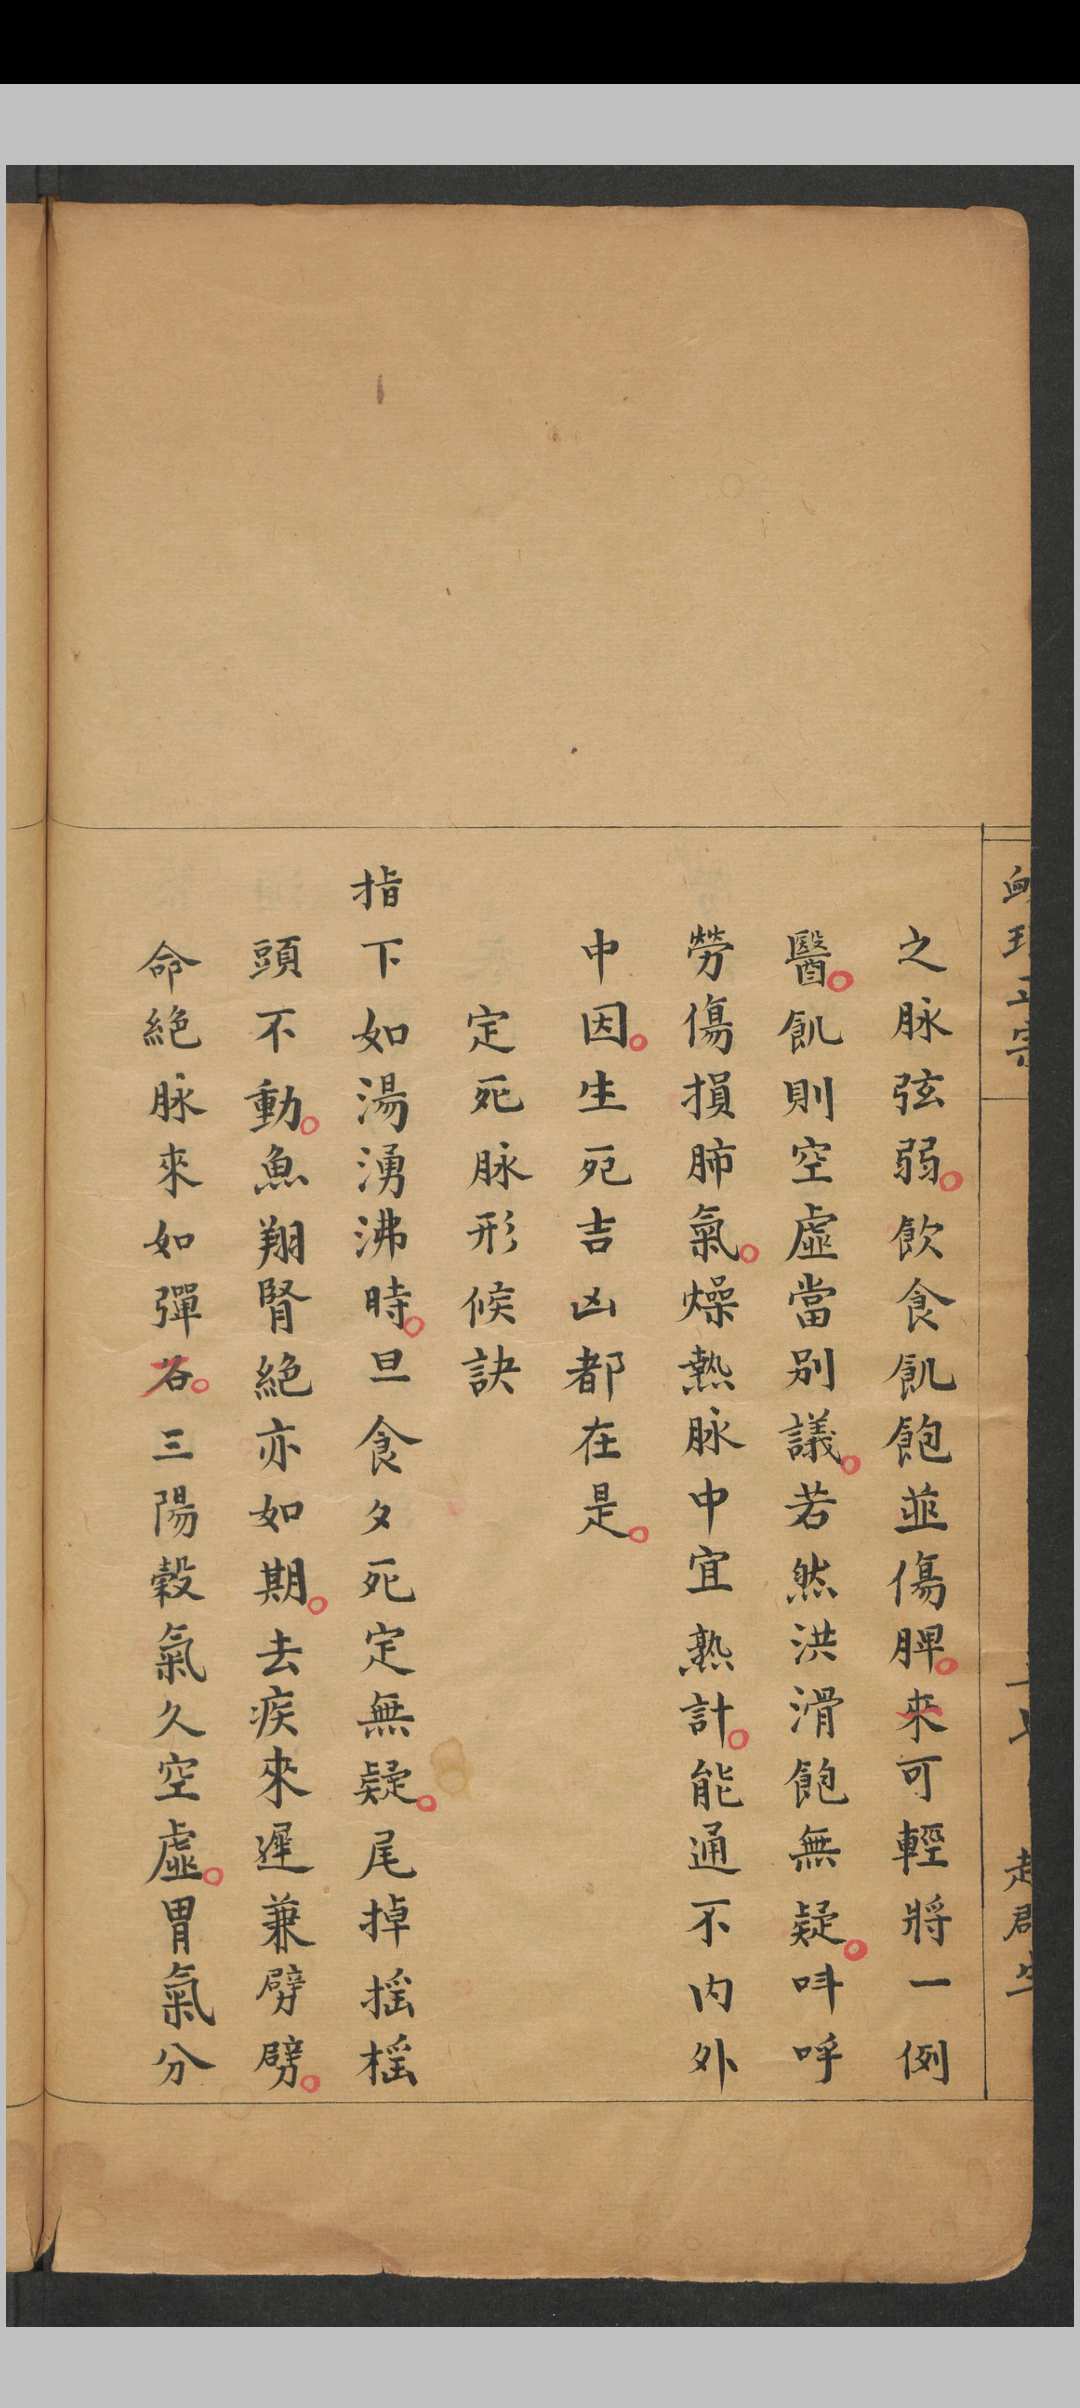 之脉弦弱飲食飢飽並傷脾來可輕將一例
醫飢則空虛當別議若然洪滑飽無疑呌呼
勞傷損肺氣燥熱脉中宜熟計能通不內外
中因生死吉凶都在是
定死脉形候訣
指下如湯湧沸時旦食夕死定無疑尾掉搖搖
頭不動魚翔腎絕亦如期去疾來遲兼劈劈
命絕脉來如彈谷三陽穀氣久空虛胃氣分